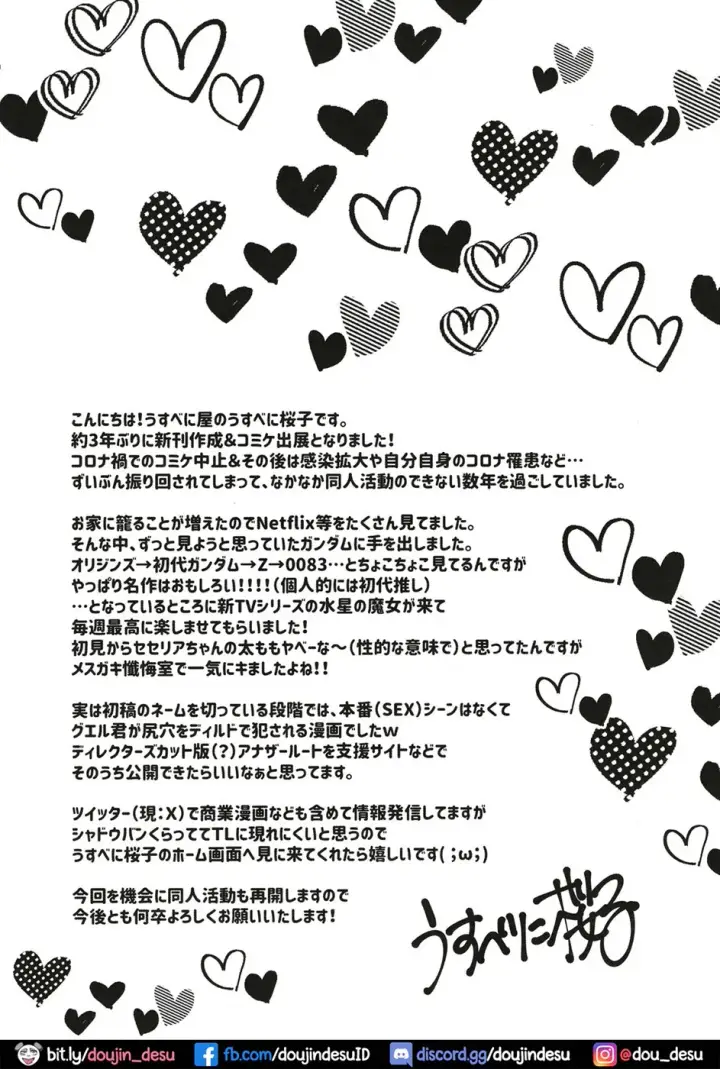 こんにちは!うすべに屋のうすべに桜子です。
約3年ぶりに新刊作成&コミケ出展となりました!
コロナ禍でのコミケ中止&その後は感染拡大や自分自身のコロナ罹患など…
ずいぶん振り回されてしまって、なかなか同人活動のできない数年を過ごしていました。
お家に籠ることが増えたのでNetflix等をたくさん見てました。
そんな中、ずっと見ようと思っていたガンダムに手を出しました。
オリジンズ→初代ガンダム→Z→0083…とちょこちょこ見てるんですが
やっぱり名作はおもしろい!!!!(個人的には初代推し)
…となっているところに新TVシリーズの水星の魔女が来て
毎週最高に楽しませてもらいました!
初見からセセリアちゃんの太ももヤベーな~(性的な意味で)と思ってたんですが
メスガキ懺悔室で一気にキましたよね!!
実は初稿のネームを切っている段階では、本番(SEX)シーンはなくて
グエル君が尻穴をディルドで犯される漫画でしたw
ディレクターズカット版(?)アナザールートを支援サイトなどで
そのうち公開できたらいいなぁと思ってます。
ツイッター(現:X)で商業漫画なども含めて情報発信してますが
シャドウバンくらっててTLに現れにくいと思うので
うすべに桜子のホーム画面へ見に来てくれたら嬉しいです( ;ω;)
今回を機会に同人活動も再開しますので
今後とも何卒よろしくお願いいたします!
うすべに桜子
bit.ly/doujin_desu fb.com/doujindesuID discord.gg/doujindesu @dou_desu